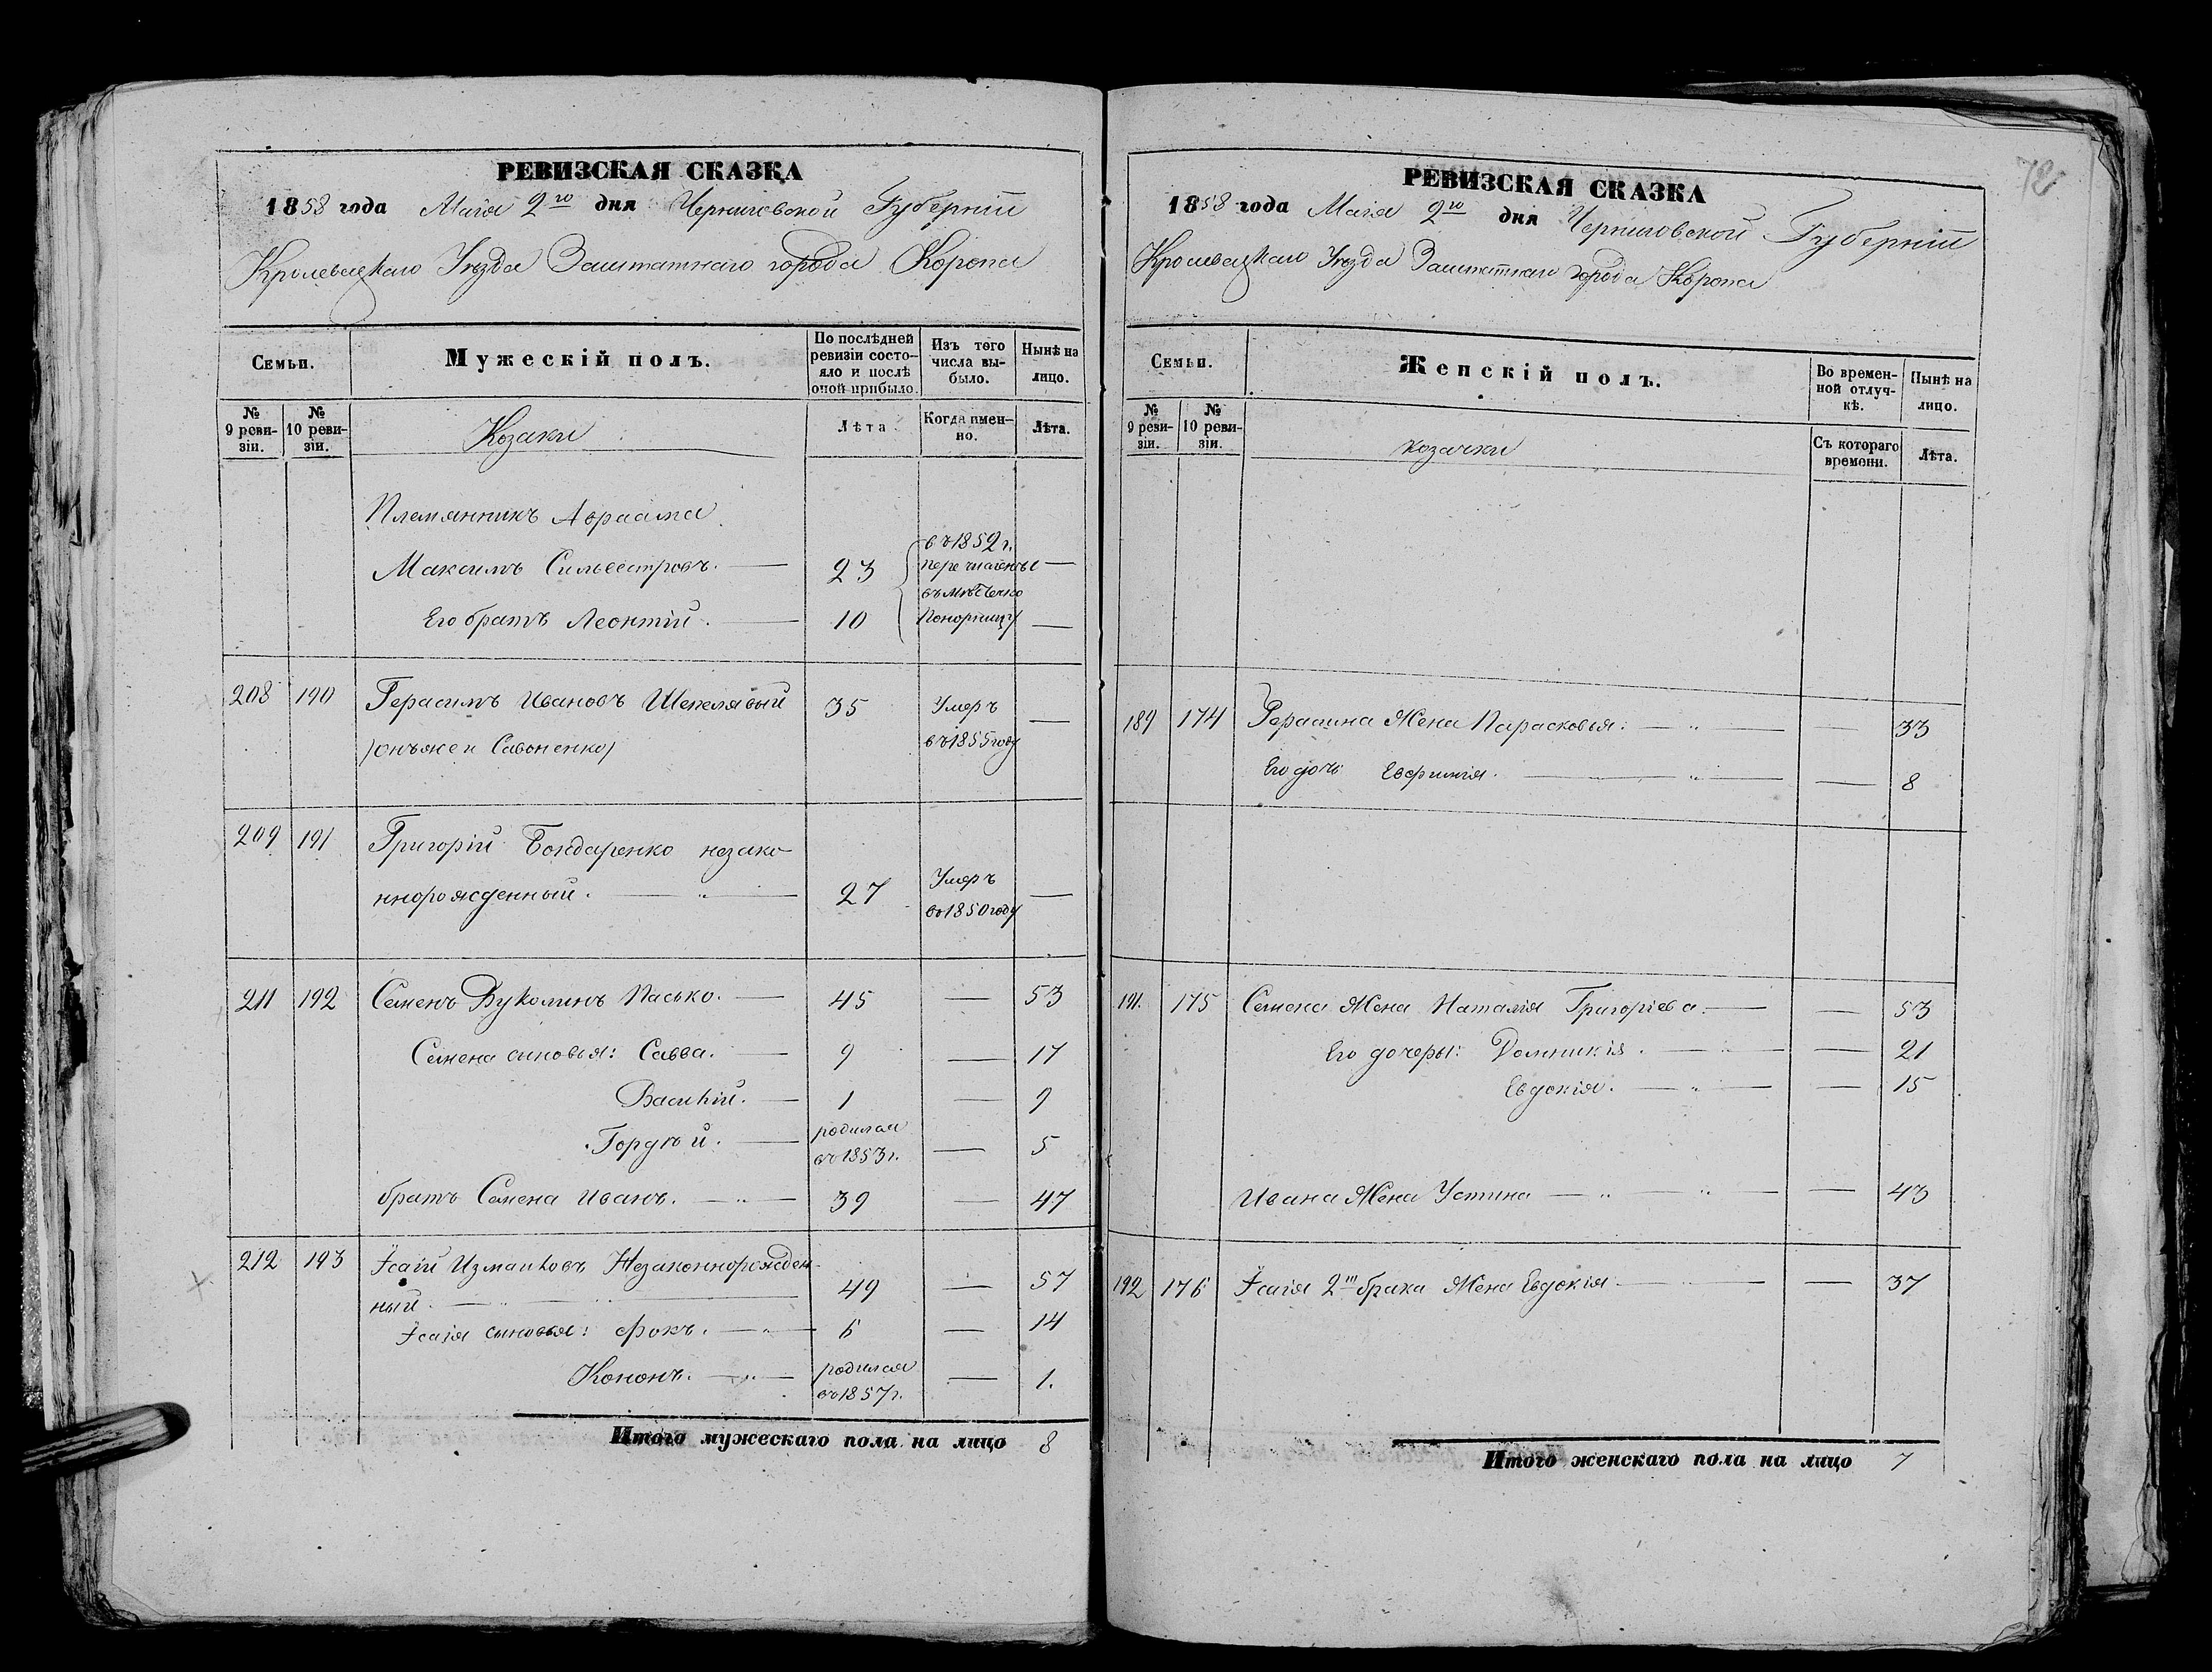 РЕВИЗСКАЯ СКАЗКА
1858 года Маія 2го дня Черниговской Губерніи
Кролевецкаго Уезда Заштатнаго города Коропа
Семьи.
Мужескій полъ.
По послѣдней ревизіи состояло и послѣ оной прибыло.
Изъ того числа выбыло.
Нынѣ на лицо.
№ 9 ревизіи.
№ 10 ревизіи.
Козаки
Лѣта
Когда именно.
Лѣта.
Племянникъ Авраама
Максимъ Сильвестровъ. — 23 въ 1852 г. перечислены въ мѣстечко Понорницу —
Его братъ Леонтій. — 10 —
208 190 Герасимъ Ивановъ Шепелявый 35 Умеръ въ 1855 году —
(онъ же и Савоненко)
209 191 Григорій Бондаренко незако-
ннорожденный. — " — 27 Умеръ въ 1850 году —
211 192 Семенъ Вуколинъ Пасько. — 45 — 53
Семена синовья: Савва. — 9 — 17
Василій. — 1 — 9
Гордѣй. — родился въ 1853 г. — 5
братъ Семена Иванъ. — " — 39 — 47
212 193 Ісаій Измаиловъ Незаконнорожден-
ный. — " — 49 — 57
Ісаія сыновья: Фокъ. — " — 6 — 14
Кононъ. — " — родился въ 1857 г. — 1.
Итого мужескаго пола на лицо 8
72
РЕВИЗСКАЯ СКАЗКА
1858 года Маія 2го дня Черниговской Губерніи
Кролевецкаго Уезда Заштатнаго города Коропа
Семьи.
Женскій полъ.
Во временной отлучкѣ.
Нынѣ на лицо.
№ 9 ревизіи.
№ 10 ревизіи.
козачки
Съ котораго времени.
Лѣта.
189 174 Герасима Жена Парасковья: — " — — 33
Его дочь Евфимія. — " — — 8
191. 175 Семена Жена Наталія Григоріева — — 53
Его дочеры: Домникія. — " — — 21
Евдокія. — " — — 15
Ивана Жена Устина — " — " — — 43
192 176 Ісаія 2го брака Жена Евдокія — " — — 37
Итого женскаго пола на лицо 7